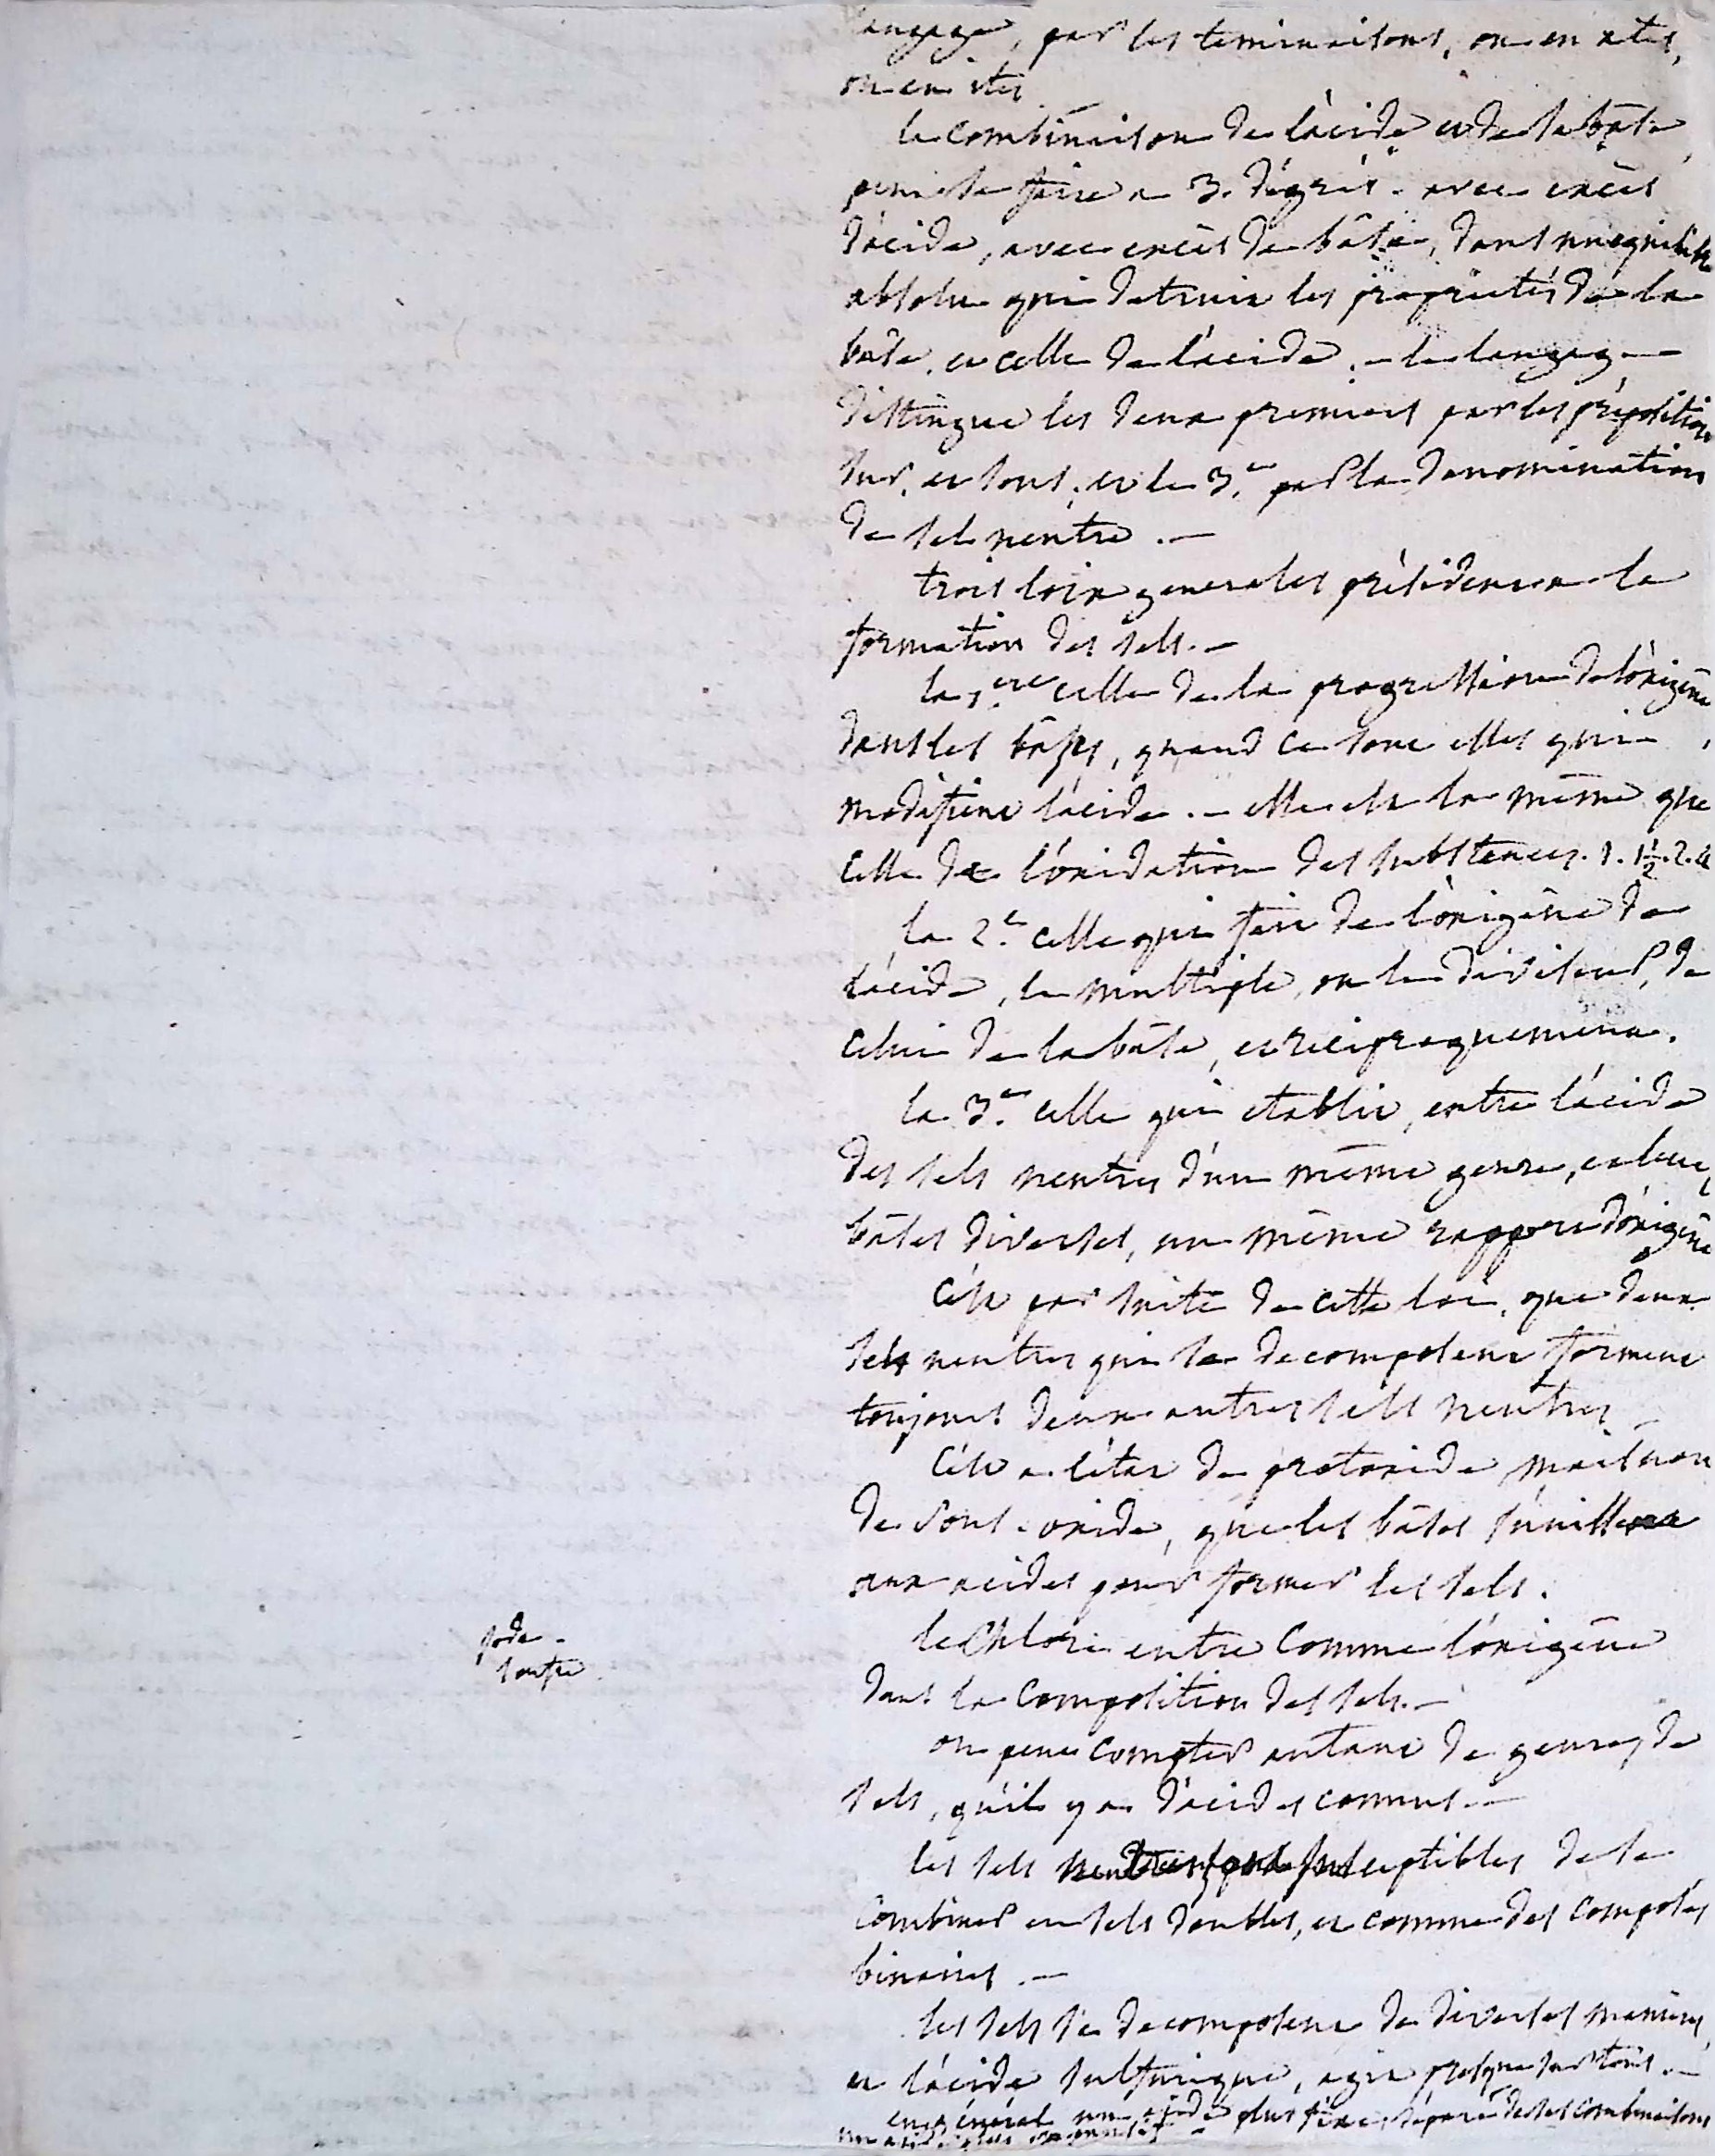 langage, par les terminaisons, ou en ates,
ou en ites
la combinaison de l'acide et de la bâse
peut se faire a 3. dégrés. avec excès
d'acide, avec excès de bâse, dans un equilibre
absolu qui detruit les propriétés de la
bâse, et celle de l'acide. - le langage
distingue les deux premiers par les prépositions
sur, et sous, et le 3.e par la denomination
de sel neutre. -
trois loix generales président a la
formation des sels. -
la 1.ere celle de la progression de l'oxigène
dans les bâses, quand ce sont elles qui
modifient l'acide. - elle est la même que
celle de l'oxidation des substances. 1. 1½. 2. 4
la 2.e celle qui fait de l'oxigène de
l'acide, le multiple, ou le diviseur, de
celui de la bâse, et réciproquement.
la 3.e celle qui etablit, entre l'acide
des sels neutres d'un même genre, et leurs
bâses diverses, un même rapport d'oxigène
C'est par suite de cette loi, que deux
sels neutres qui se decomposent forment
toujours deux autres sels neutres -
C'est a l'état de protoxide, mais non
de sous-oxide, que les bâses s'unissent
aux acides pour former les sels.
le Chlore entre comme l'oxigène
dans la composition des sels. -
iode -
soufre
on peut compter autant de genres de
sels, qu'il y a d'acides connus. -
les sels neutres sont susceptibles de se
combiner en sels doubles, et comme des composés
binaires. -
les sels se decomposent de diverses manieres,
et l'acide sulfurique, agit presque sur tous. -
en général un acide plus fixe, sépare de ses combinaisons
un acide plus